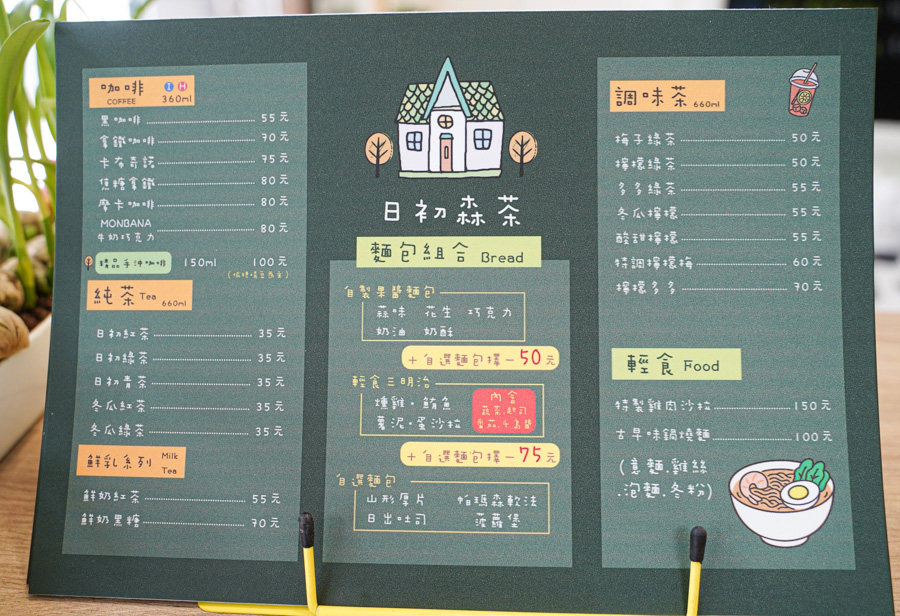 咖啡 I H
COFFEE 360ml
黑咖啡 55元
拿鐵咖啡 70元
卡布奇諾 75元
焦糖拿鐵 80元
摩卡咖啡 80元
MONBANA
牛奶巧克力 80元
精品手沖咖啡 150ml 100元
純茶 Tea 660ml
日初紅茶 35元
日初綠茶 35元
日初青茶 35元
冬瓜紅茶 35元
冬瓜綠茶 35元
鮮乳系列 Milk Tea
鮮奶紅茶 55元
鮮奶黑糖 70元
日初森茶
麵包組合 Bread
自製果醬麵包
蒜味 花生 巧克力
奶油 奶酥
+自選麵包擇一50元
輕食三明治
燻雞·鮪魚
薯泥·蛋沙拉
內含
蔬菜.起司
+自選麵包擇一75元
自選麵包
山形厚片 帕瑪森軟法
日出吐司 菠蘿堡
調味茶 660ml
梅子綠茶 50元
檸檬綠茶 50元
多多綠茶 55元
冬瓜檸檬 55元
酸甜檸檬 55元
特調檸檬梅 60元
檸檬多多 70元
輕食 Food
特製雞肉沙拉 150元
古早味鍋燒麵 100元
(意麵.雞絲
.泡麵.冬粉)